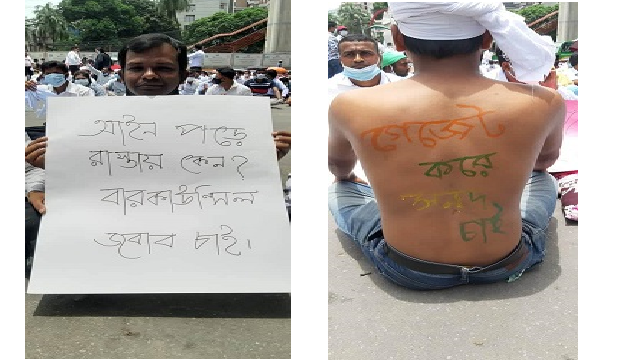 আইন পড়ে
রাস্তায় কেন?
বারকাউন্সিল
জবাব চাই।
গেজেট
করে
সনদ
চাই